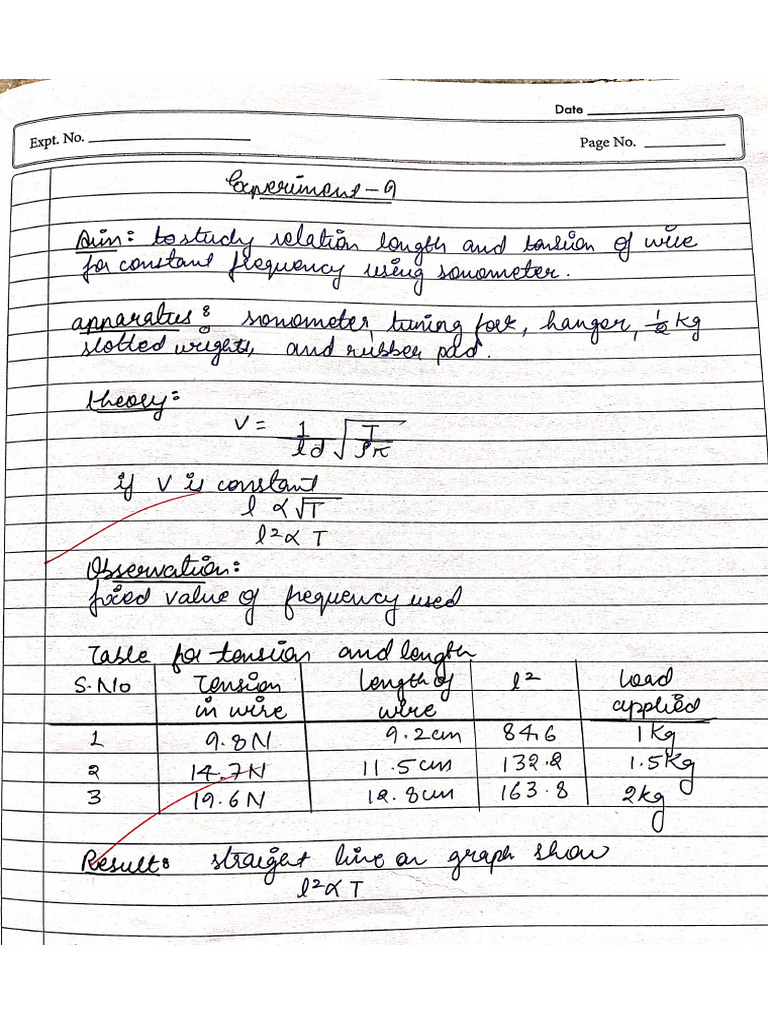 Date
Expt. No.
Page No.
Experiment-9
Aim: to study relation length and tension of wire
for constant frequency using sonometer.
apparatus: sonometer, tuning fork, hanger, 1/2 kg
slotted weights, and rubber pad.
theory:
V = 1/ld √T/ρπ
if V is constant
l ∝ √T
l² ∝ T
Observation:
fixed value of frequency used
Table for tension and length
S.No Tension in wire Length of wire l² Load applied
1 9.8N 9.2cm 84.6 1kg
2 14.7N 11.5cm 132.2 1.5kg
3 19.6N 12.8cm 163.8 2kg
Result: straight line on graph show
l² ∝ T